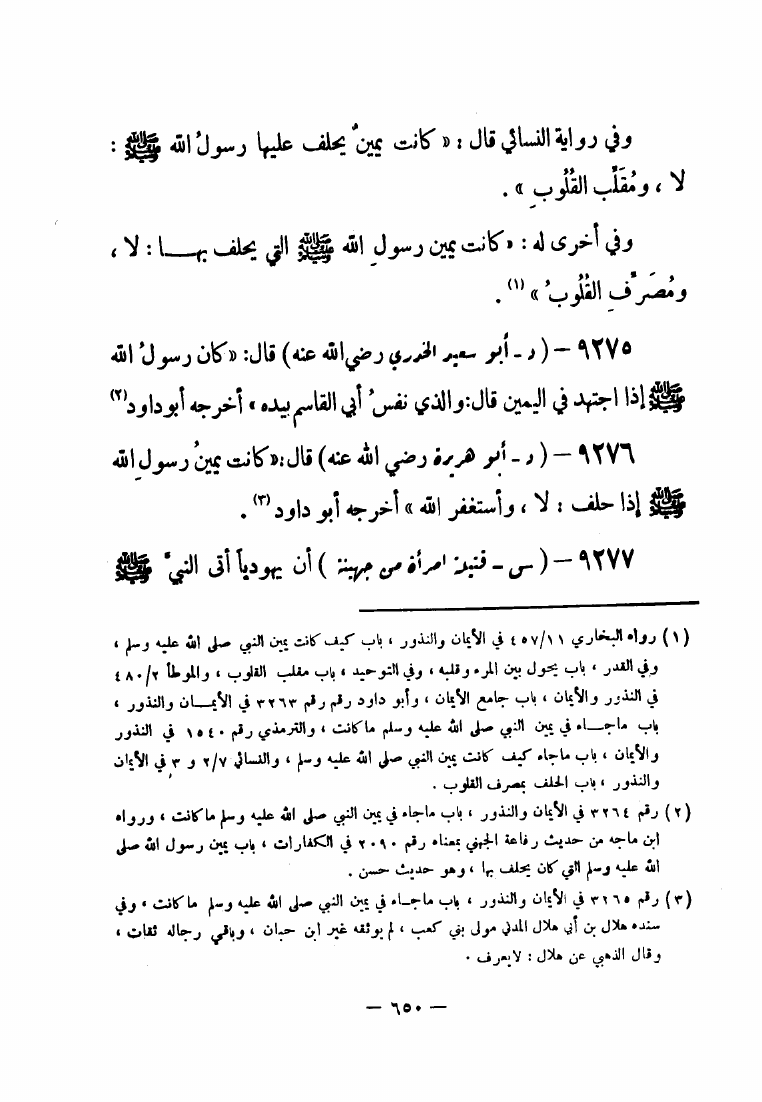 وفي رواية النسائي قال : « كانت يمينٌ يحلف عليها رسولُ الله ﷺ :
لا ، ومُقَلِّب القُلُوبِ » .
وفي أخرى له : « كانت يمين رسولِ الله ﷺ التي يحلف بهـــا : لا ،
ومُصَرِّفِ القُلُوبُ » (١) .
٩٢٧٥ – ( د - أبو سعيد الخدري رضي الله عنه ) قال : « كان رسولُ الله
ﷺ إذا اجتهد في اليمين قال : والذي نفسُ أبي القاسم بيده » أخرجه أبو داود (٢)
٩٢٧٦ – ( د - أبو هريرة رضي الله عنه ) قال : « كانت يمينُ رسولِ الله
ﷺ إذا حلف : لا ، وأستغفر الله » أخرجه أبو داود (٣) .
٩٢٧٧ – ( س - قتيلة امرأة من جهينة ) أن يهودياً أتى النبيَّ ﷺ
(١) رواه البخاري ٤٥٧/١١ في الأيمان والنذور ، باب كيف كانت يمين النبي صلى الله عليه وسلم ،
وفي القدر ، باب يحول بين المرء وقلبه ، وفي التوحيد ، باب مقلب القلوب ، والموطأ ٤٨٠/٢
في النذور والأيمان ، باب جامع الأيمان ، وأبو داود رقم رقم ٣٢٦٣ في الأيمـــان والنذور ،
باب ماجـــاء في يمين النبي صلى الله عليه وسلم ماكانت ، والترمذي رقم ١٥٤٠ في النذور
والأيمان ، باب ماجاء كيف كانت يمين النبي صلى الله عليه وسلم ، والنسائي ٢/٧ و ٣ في الأيمان
والنذور ، باب الحلف بمصرف القلوب .
(٢) رقم ٣٢٦٤ في الأيمان والنذور ، باب ماجاء في يمين النبي صلى الله عليه وسلم ماكانت ، ورواه
ابن ماجه من حديث رفاعة الجهني بمعناه رقم ٢٠٩٠ في الكفارات ، باب يمين رسول الله صلى
الله عليه وسلم التي كان يحلف بها ، وهو حديث حسن .
(٣) رقم ٣٢٦٥ في الأيمان والنذور ، باب ماجـــاء في يمين النبي صلى الله عليه وسلم ماكانت ، وفي
سنده هلال بن أبي هلال المدني مولى بني كعب ، لم يوثقه غير ابن حبان ، وباقي رجاله ثقات ،
وقال الذهبي عن هلال : لايعرف .
– ٦٥٠ –